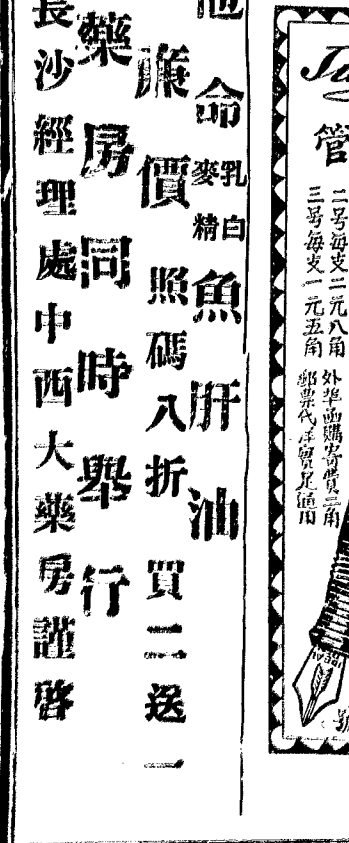 管
二号每支二元八角
三号每支一元五角
外埠函購寄費二角
郵票代洋實足通用
命乳白麥精魚肝油
廉價照碼八折買二送一
藥房同時舉行
長沙經理處中西大藥房謹啓